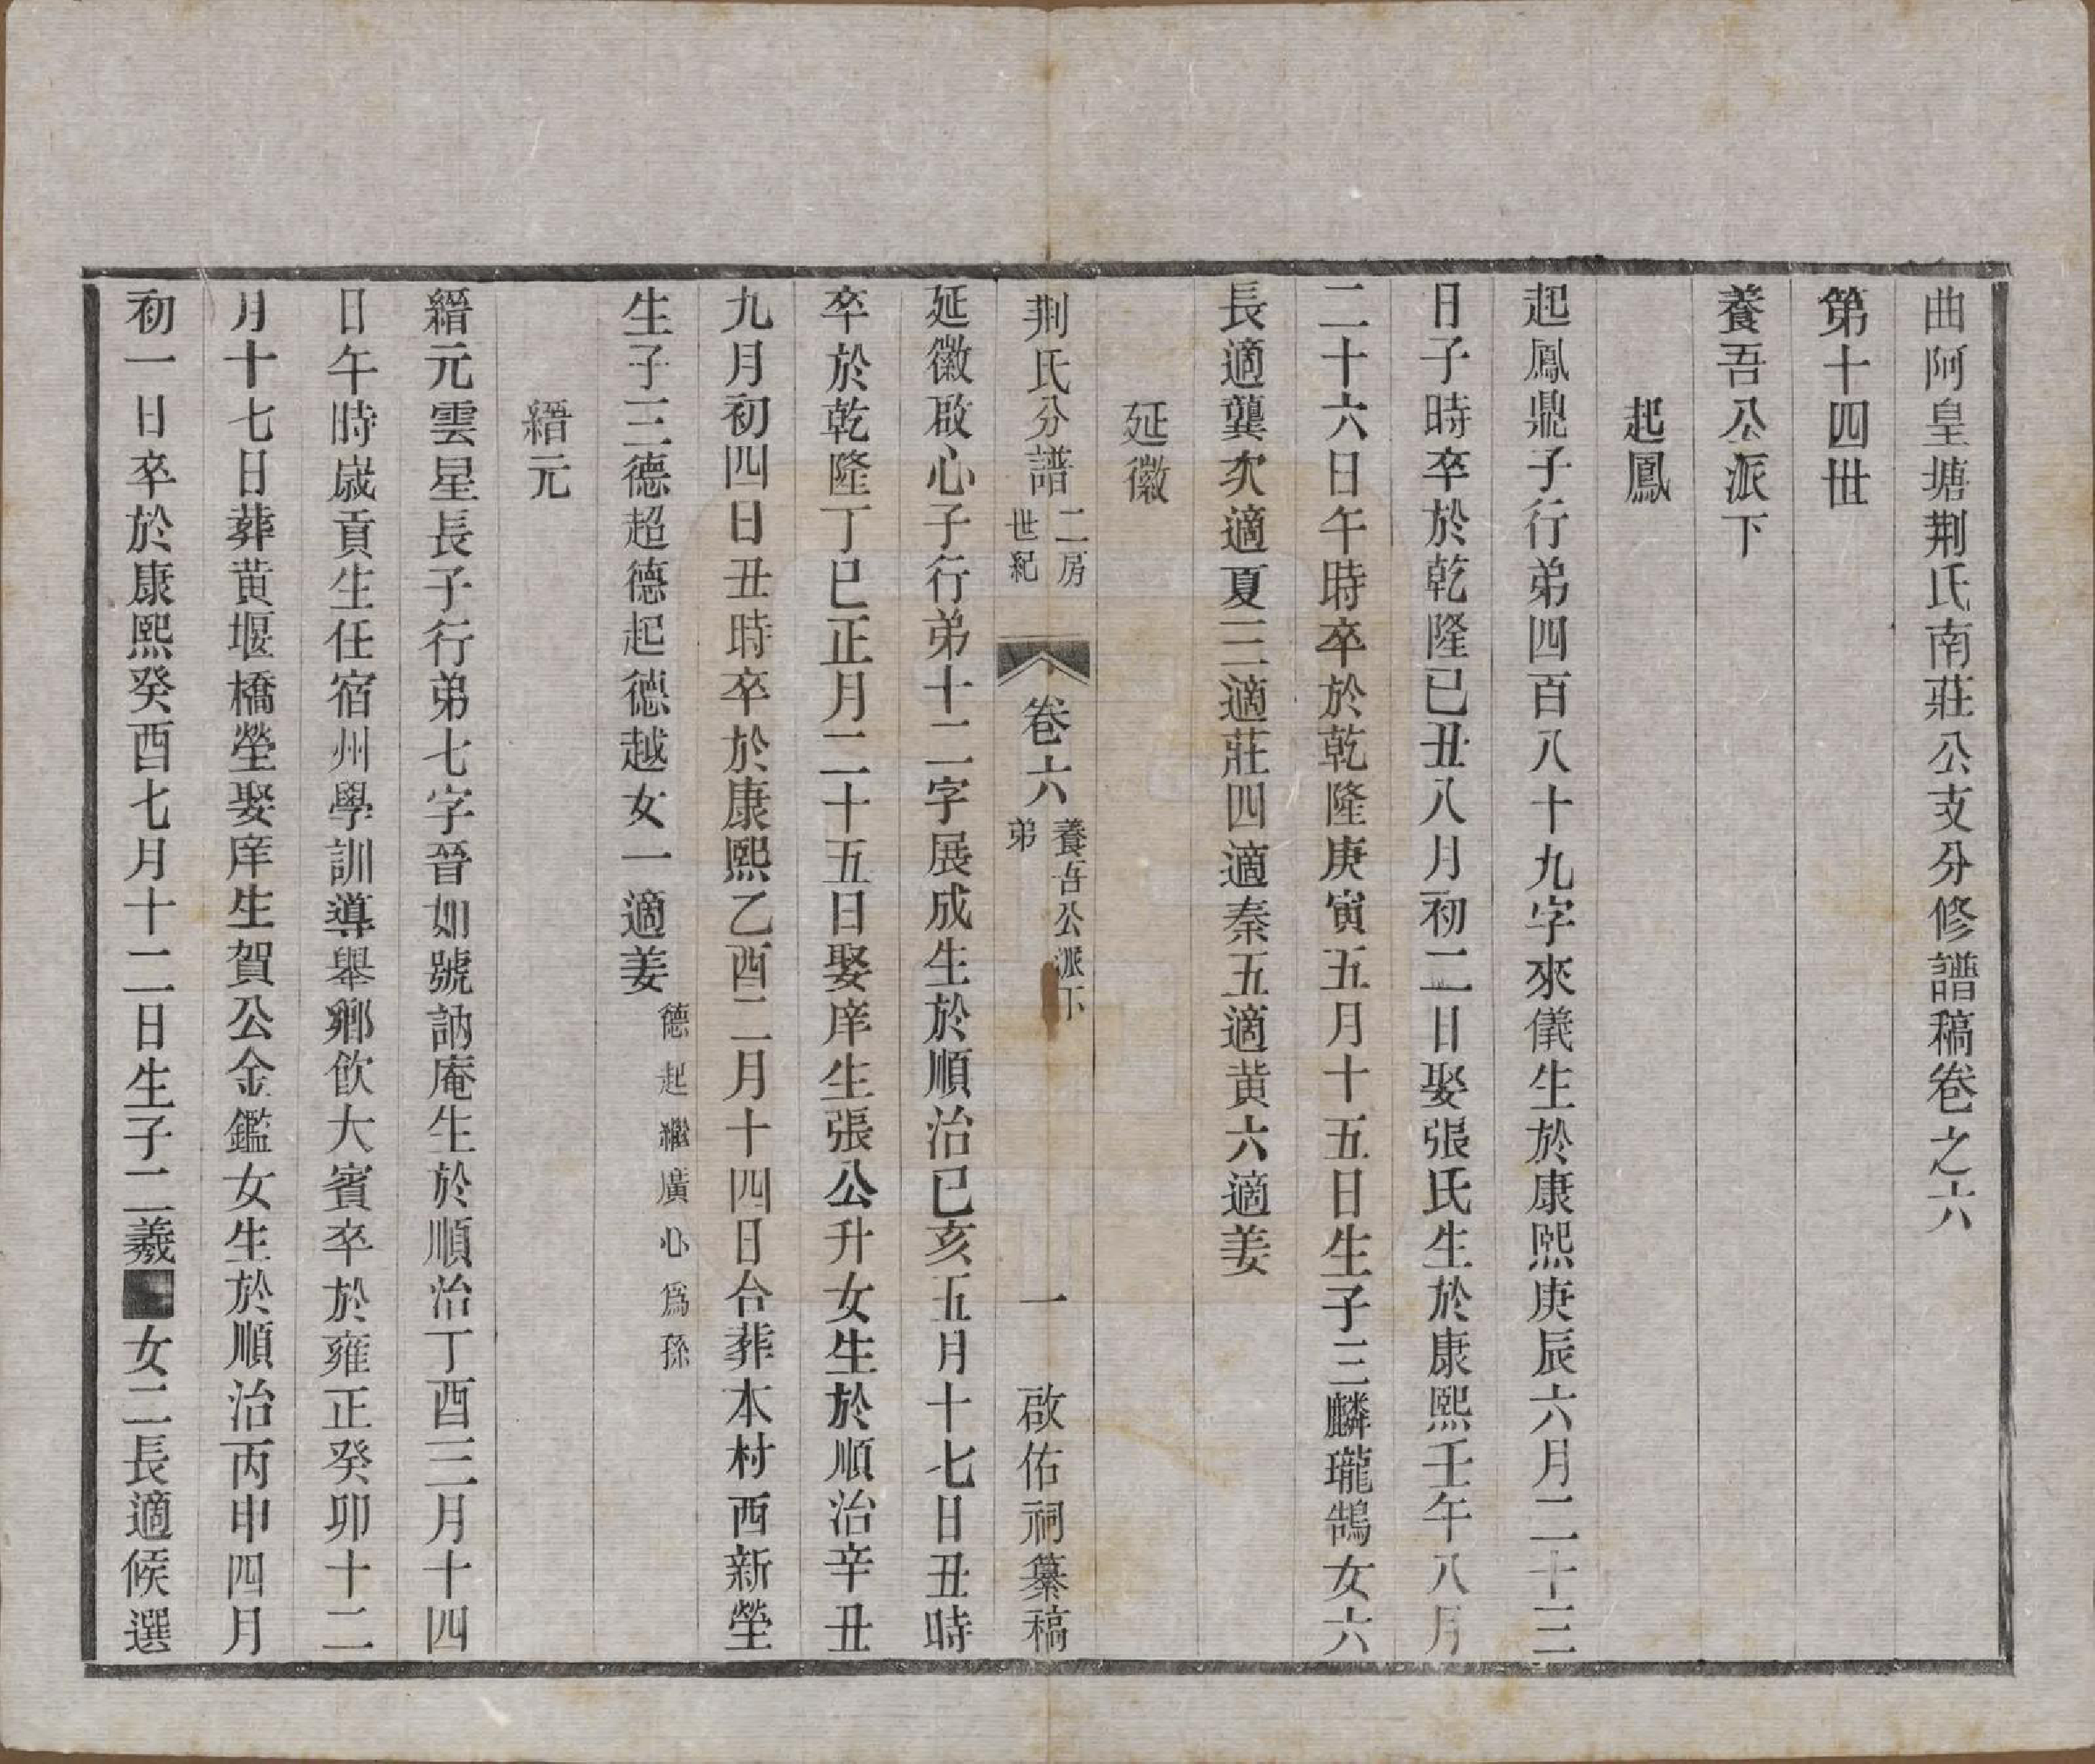 曲阿皇塘荆氏南莊公支分修譜稿卷之六
第十四世
養吾公派下
起鳳
起鳳鼎子行弟四百八十九字來儀生於康熙庚辰六月二十三
日子時卒於乾隆已丑八月初二日娶張氏生於康熙壬午八月
二十六日午時卒於乾隆庚寅五月十五日生子三麟瓏鵠女六
長適龔次適夏三適莊四適秦五適黄六適姜
延徽
荆氏分譜 二房世紀 卷六 養吾公派下弟 一 啟佑祠纂稿
延徽啟心子行弟十二字展成生於順治已亥五月十七日丑時
卒於乾隆丁已正月二十五日娶庠生張公升女生於順治辛丑
九月初四日丑時卒於康熙乙酉二月十四日合葬本村西新塋
生子三德超德起德越女一適姜 德起繼廣心爲孫
縉元
縉元雲星長子行弟七字晉如號訥庵生於順治丁酉三月十四
日午時歲貢生任宿州學訓導舉鄉飲大賓卒於雍正癸卯十二
月十七日葬黄堰橋塋娶庠生賀公金鑑女生於順治丙申四月
初一日卒於康熙癸酉七月十二日生子二羲 女二長適候選